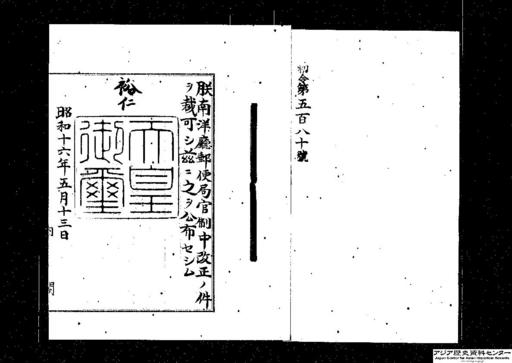 勅令第五百八十號
朕南洋廳郵便局官制中改正ノ件
ヲ裁可シ茲ニ之ヲ公布セシム
裕仁
天皇御璽
昭和十六年五月十三日
内 閣
アジア歴史資料センター
Japan Center for Asian Historical Records